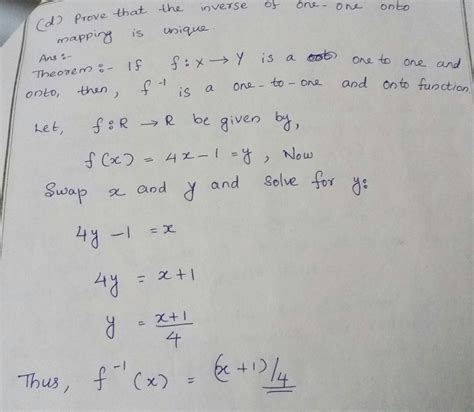 (d) Prove that the inverse of one-one onto
mapping is unique.
Ans:-
Theorem:- If f: x → Y is a one to one and
onto, then, f⁻¹ is a one-to-one and onto function.
Let, f: R → R be given by,
f(x) = 4x-1 = y, Now
Swap x and y and solve for y:
4y - 1 = x
4y = x+1
y = x+1/4
Thus, f⁻¹(x) = (x+1)/4